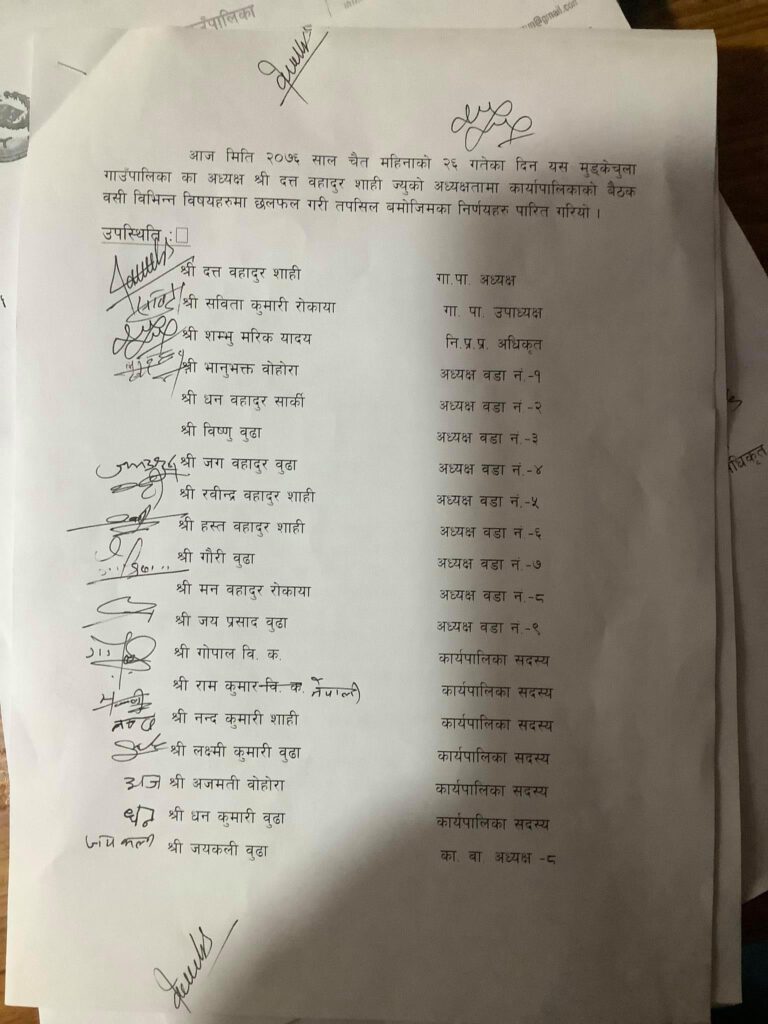 उँपालिका
m@gmail.com
आज मिति २०७६ साल चैत महिनाको २६ गतेका दिन यस मुड्केचुला
गाउँपालिका का अध्यक्ष श्री दत्त वहादुर शाही ज्युको अध्यक्षतामा कार्यापालिकाको बैठक
वसी विभिन्न विषयहरुमा छलफल गरी तपसिल बमोजिमका निर्णयहरु पारित गरियो ।
उपस्थिति :
श्री दत्त वहादुर शाही गा.पा. अध्यक्ष
श्री सविता कुमारी रोकाया गा. पा. उपाध्यक्ष
श्री शम्भु मरिक यादय नि.प्र.प्र. अधिकृत
श्री भानुभक्त वोहोरा अध्यक्ष वडा नं.-१
श्री धन वहादुर सार्की अध्यक्ष वडा नं.-२
श्री विष्णु वुढा अध्यक्ष वडा नं.-३
श्री जग वहादुर वुढा अध्यक्ष वडा नं.-४
श्री रवीन्द्र वहादुर शाही अध्यक्ष वडा नं.-५
श्री हस्त वहादुर शाही अध्यक्ष वडा नं.-६
श्री गौरी वुढा अध्यक्ष वडा नं.-७
श्री मन वहादुर रोकाया अध्यक्ष वडा नं.-८
श्री जय प्रसाद वुढा अध्यक्ष वडा नं.-९
श्री गोपाल वि. क. कार्यपालिका सदस्य
श्री राम कुमार वि. क. नेपाली कार्यपालिका सदस्य
श्री नन्द कुमारी शाही कार्यपालिका सदस्य
श्री लक्ष्मी कुमारी वुढा कार्यपालिका सदस्य
अज श्री अजमती वोहोरा कार्यपालिका सदस्य
धन श्री धन कुमारी वुढा कार्यपालिका सदस्य
जयकली श्री जयकली वुढा का. वा अध्यक्ष -८
धिकृत